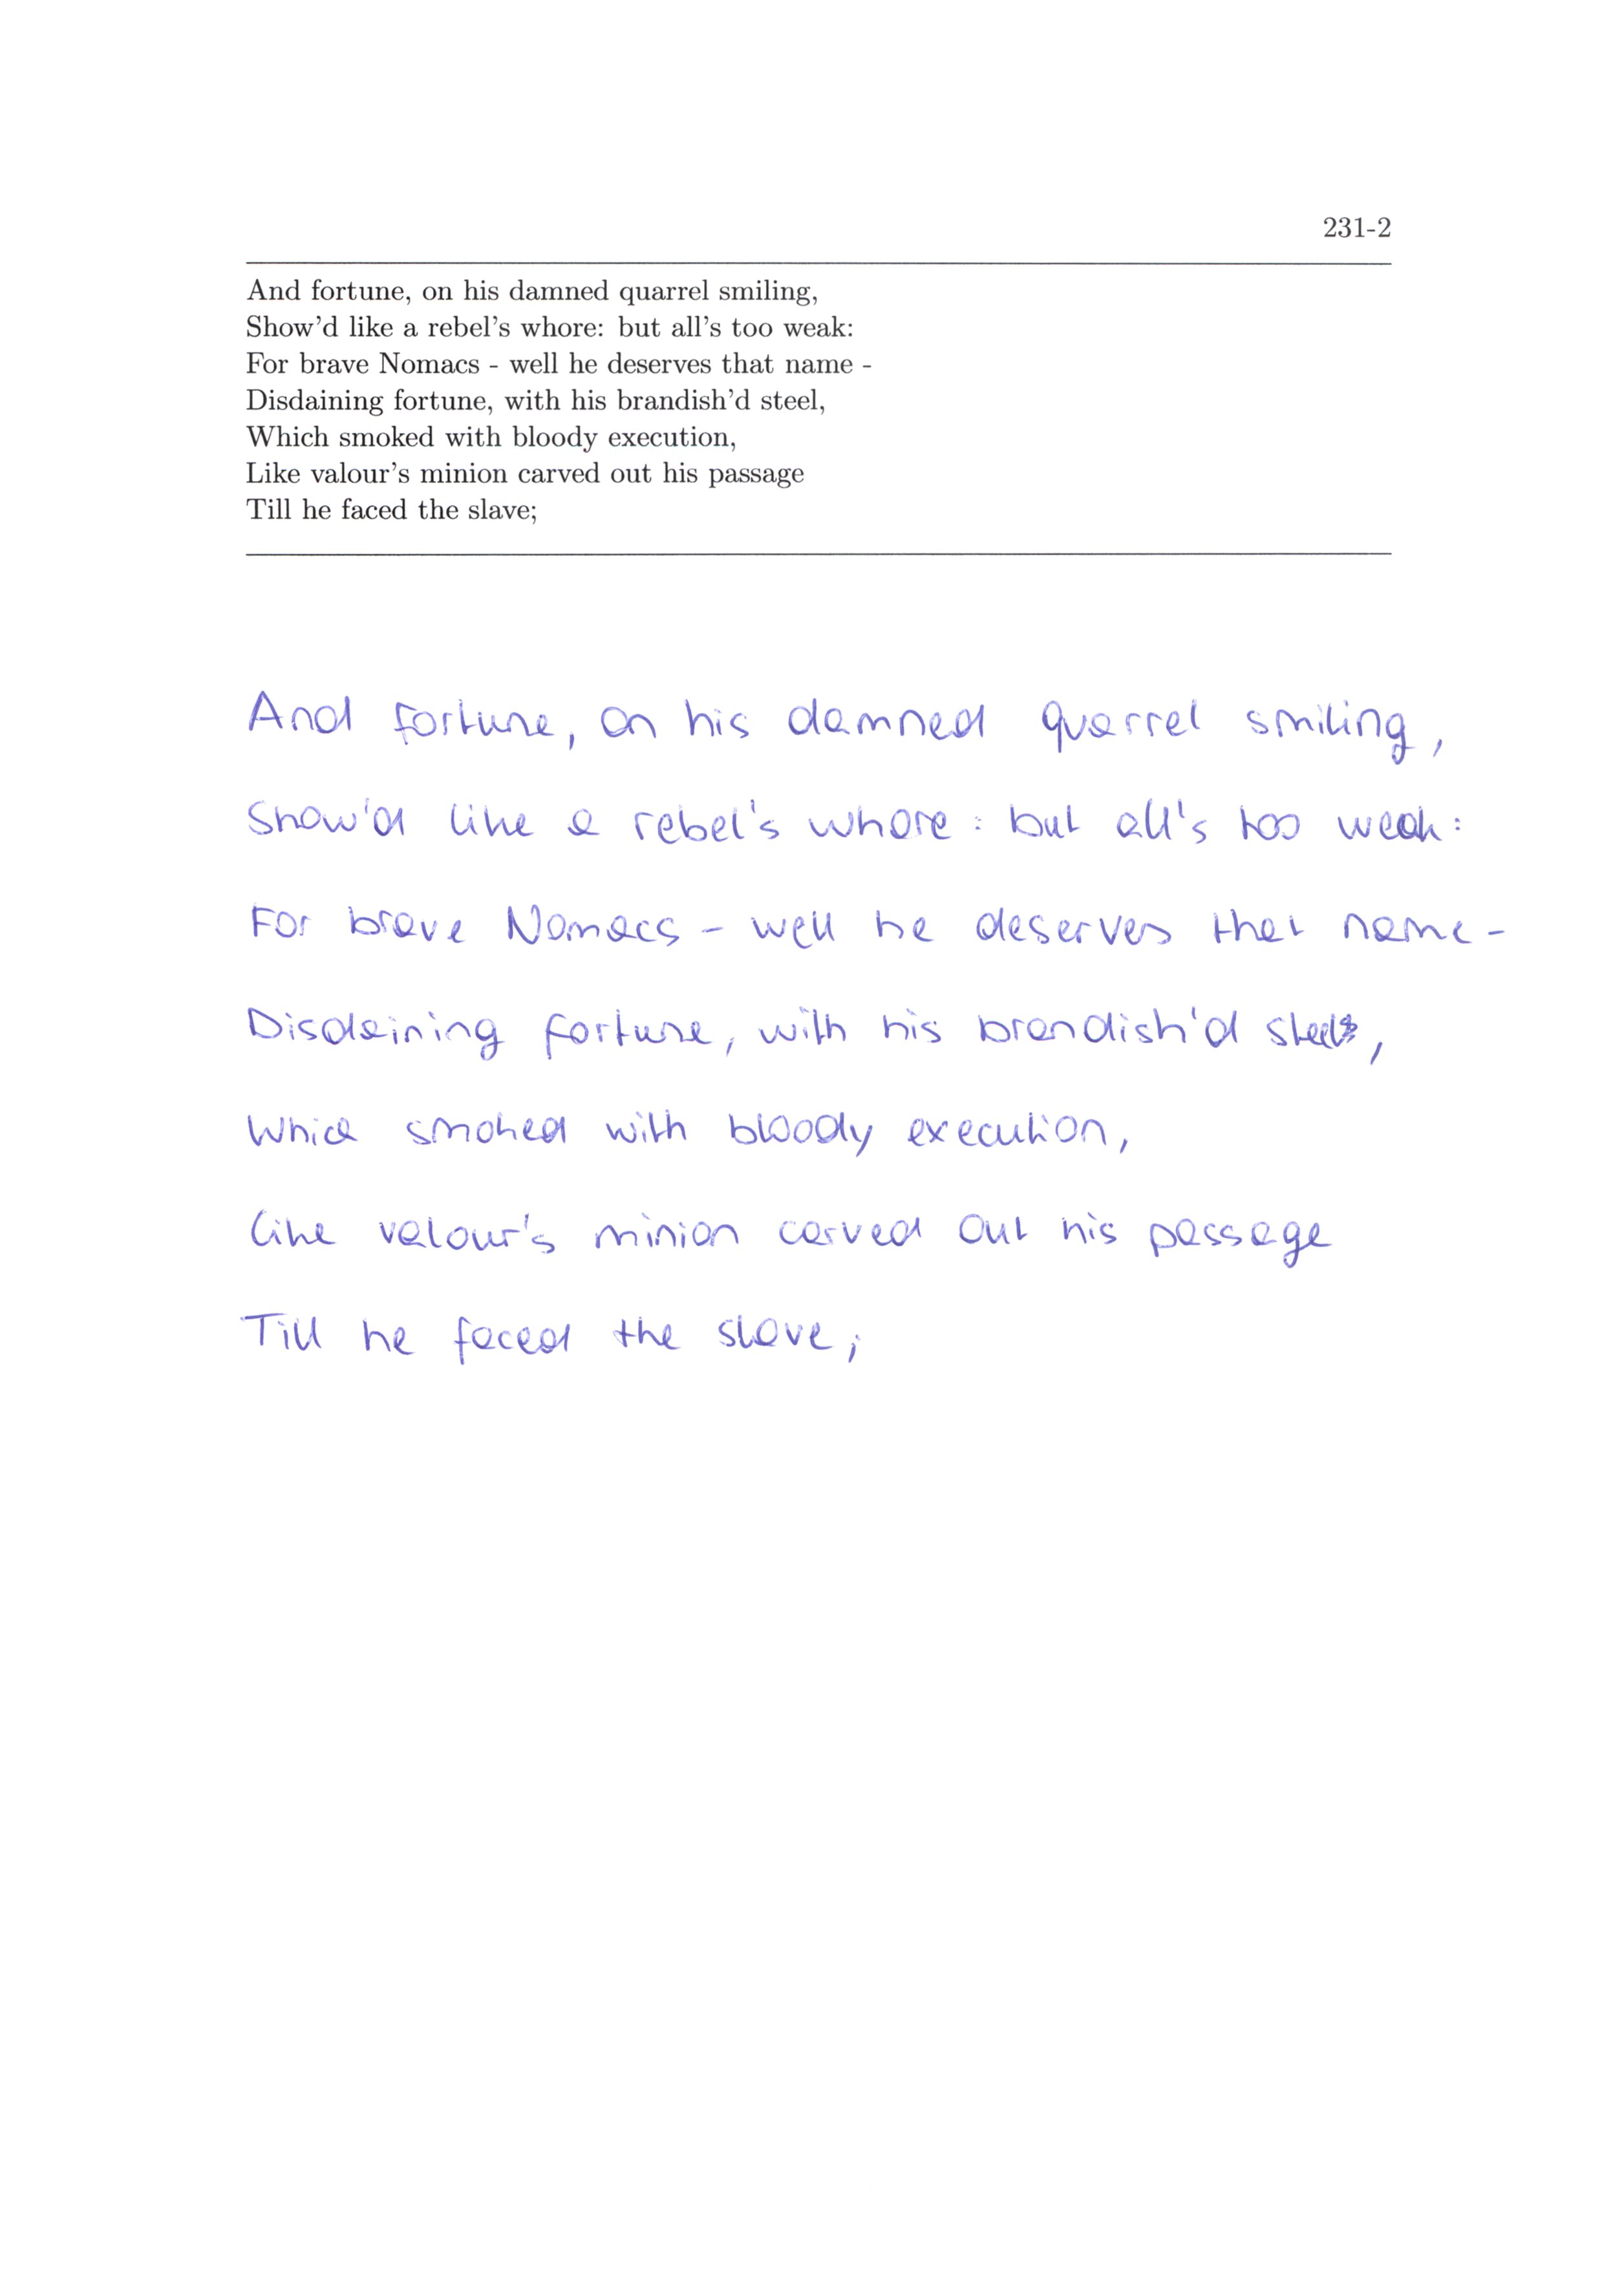 231-2
And fortune, on his damned quarrel smiling,
Show'd like a rebel's whore: but all's too weak:
For brave Nomacs - well he deserves that name -
Disdaining fortune, with his brandish'd steel,
Which smoked with bloody execution,
Like valour's minion carved out his passage
Till he faced the slave;
And fortune, on his damned quarrel smiling,
Show'd like a rebel's whore: but all's too weak:
For brave Nomacs - well he deserves that name -
Disdaining fortune, with his brandish'd steel,
Which smoked with bloody execution,
Like valour's minion carved out his passage
Till he faced the slave;